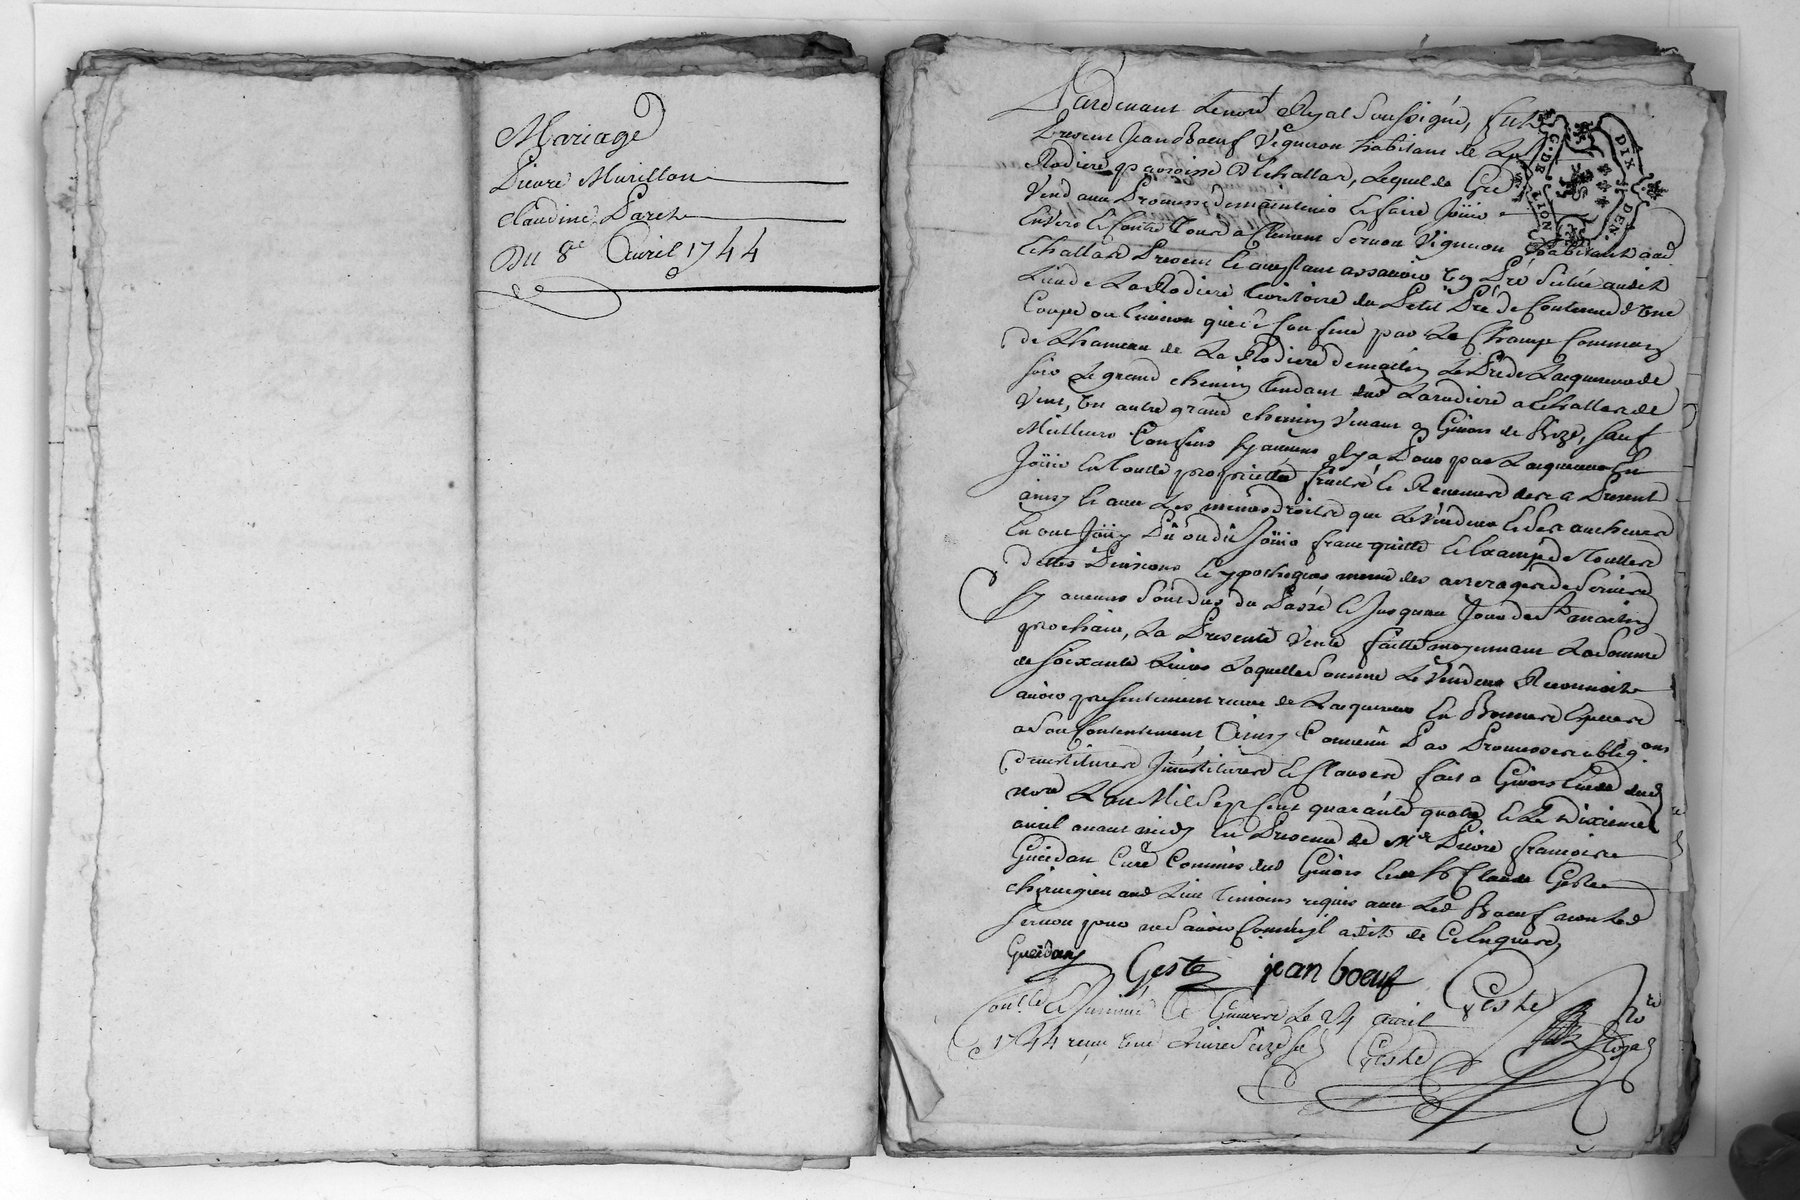 Mariage
Pierre Murillon
Claudine Paret
Du 8e Avril 1744
Pardevant le nore Royal soussigné, fut
Present Jean Boeuf Vigneron habitant de la
Rodiere paroisse d'Echallas, lequel de Gré
Vend avec Promesse de maintenir et faire Jouir
Envers et contre Tous a Clement Sernon Vigneron habitant aud
Echallas Present et acceptant assavoir Un Pré situé audit
Lieu de La Rodiere territoire du Petit Pré de Contenue d'Une
Coupe ou Environ qui se Confine par le Champ Commun
de L'hameau de La Rodiere de matin, le Pré de L'acquereur de
soir le grand chemin Tendant dud Larodiere a Echallas de
Vent, Un autre grand chemin Venant a Givors de Bize, sauf
Meilleurs Confins sy aucuns il y a Pour par L'acquereur En
Jouir En Toutte proprietté fruits et Revenus des a Present
ainsy et avec les mêmes droits que le Vendeur et ses autheurs
En ont Jouy Pû ou dû Jouir franc quitte et Exampt de Touttes
dettes Pensions et ypotheques meme des arrerages de servis
sy aucuns sont dus du Passé et Jusquau Jour de St martin
prochain, La Presente Vente faitte moyennant La somme
de soixante Livres Laquelle somme Le Vendeur Reconnoit
avoir presentement receu de L'acquereur En Bonnes Especes
a son Contentement Ainsy Convenû Par Promesses obligons
devestitures Investitures et Clauses fait a Givors Etude dud
nore L'an Mil Sept Cent quarante quatre et Le Dixieme
avril avant midy En Presence de Mre Pierre francois
Gueidan Curé Commis dud Givors et de Sr Claude Geste
chirurgien aud Lieu Temoins requis avec Led Boeuf non Led
Sernon pour ne savoir Comme il a dit de Ce Enquis
Gueidan Geste jean boeuf Geste
nore Royal
Conlle Et Insinué a Givors le 24 avril
1744 receu Une Livre Seize s
Geste